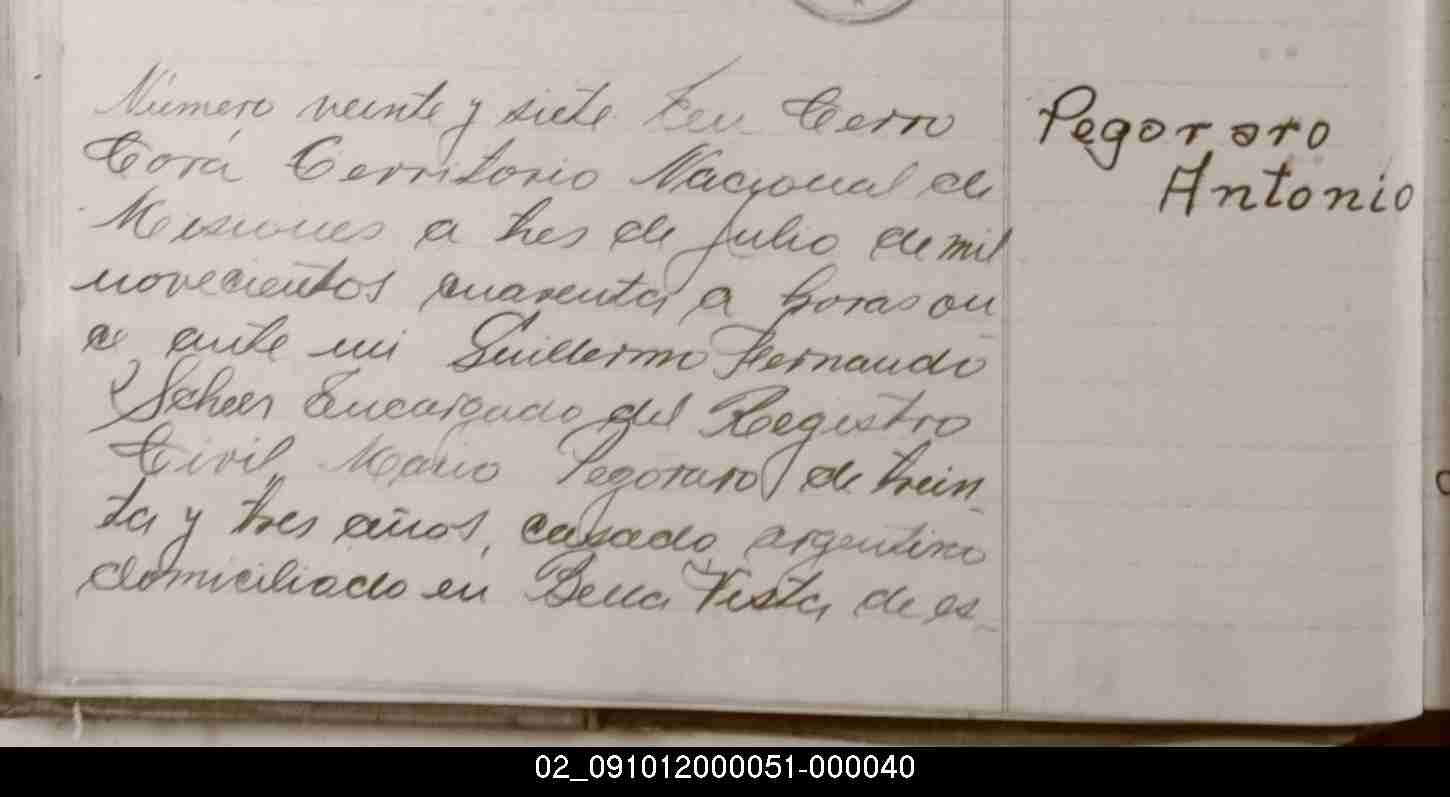 Número veinte y siete En Cerro
Corá Territorio Nacional de
Misiones a tres de julio de mil
novecientos cuarenta a horas on
ce ante mi Guillermo Fernando
Scheer Encargado del Registro
Civil, Mario Pegoraro de trein
ta y tres años, casado argentino
domiciliado en Bella Vista de es_
Pegoraro
Antonio
02_091012000051-000040